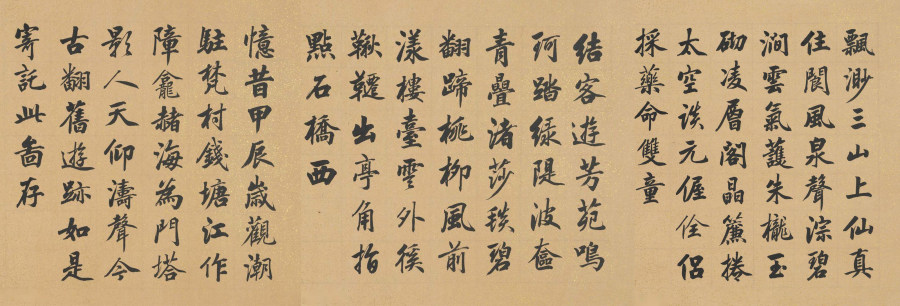 飄渺三山上仙真
住閬風泉聲淙碧
澗雲氣護朱櫳玉
砌凌層閣晶簾捲
太空談元偓佺侶
採藥命雙童
結客遊芳苑鳴
珂踏綠隄波奩
青疊渚莎毯碧
翻蹄桃柳風前
漾樓臺雲外徯
鞦韆出亭角指
點石橋西
憶昔甲辰歲觀潮
駐梵村錢塘江作
障龕赭海為門塔
影人天仰濤聲今
古翻舊遊跡如是
寄託此啚存